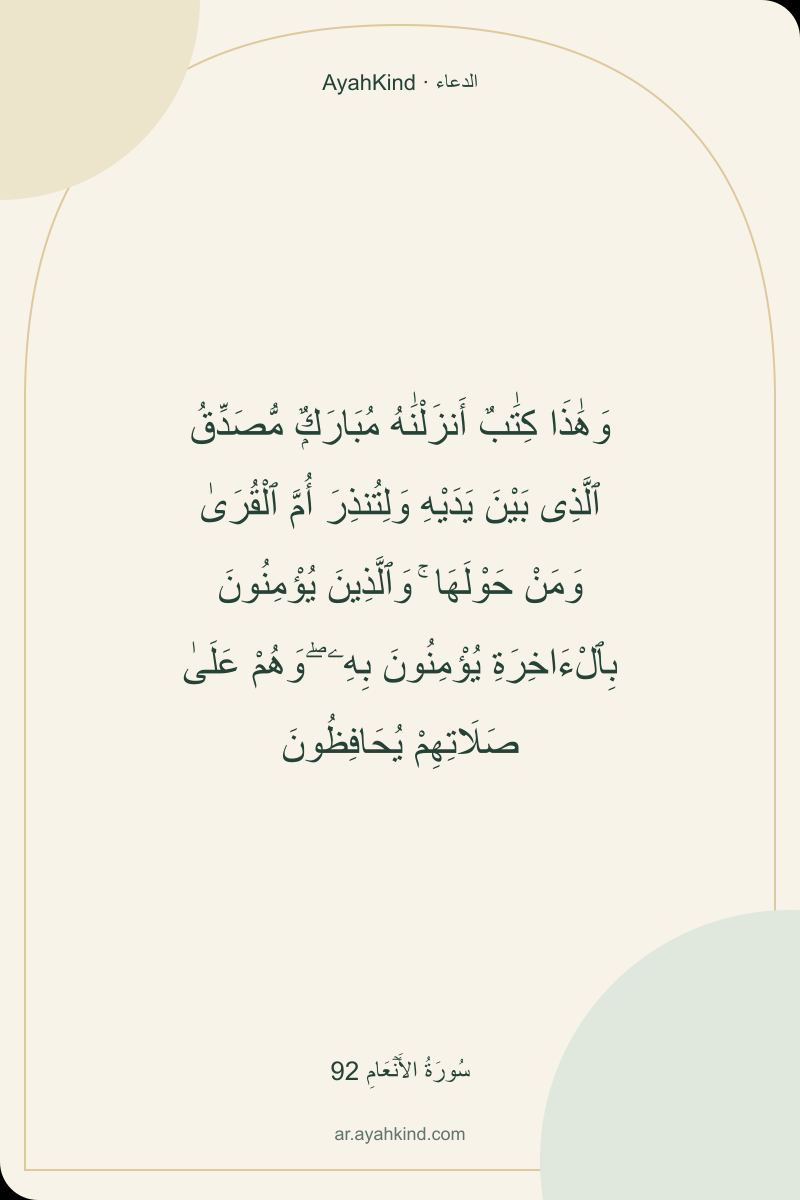 AyahKind · الدعاء
وَهَٰذَا كِتَٰبٌ أَنزَلْنَٰهُ مُبَارَكٌۭ مُّصَدِّقُ
ٱلَّذِى بَيْنَ يَدَيْهِ وَلِتُنذِرَ أُمَّ ٱلْقُرَىٰ
وَمَنْ حَوْلَهَا ۚ وَٱلَّذِينَ يُؤْمِنُونَ
بِٱلْءَاخِرَةِ يُؤْمِنُونَ بِهِۦ ۖ وَهُمْ عَلَىٰ
صَلَاتِهِمْ يُحَافِظُونَ
سُورَةُ الأَنۡعَامِ 92
ar.ayahkind.com